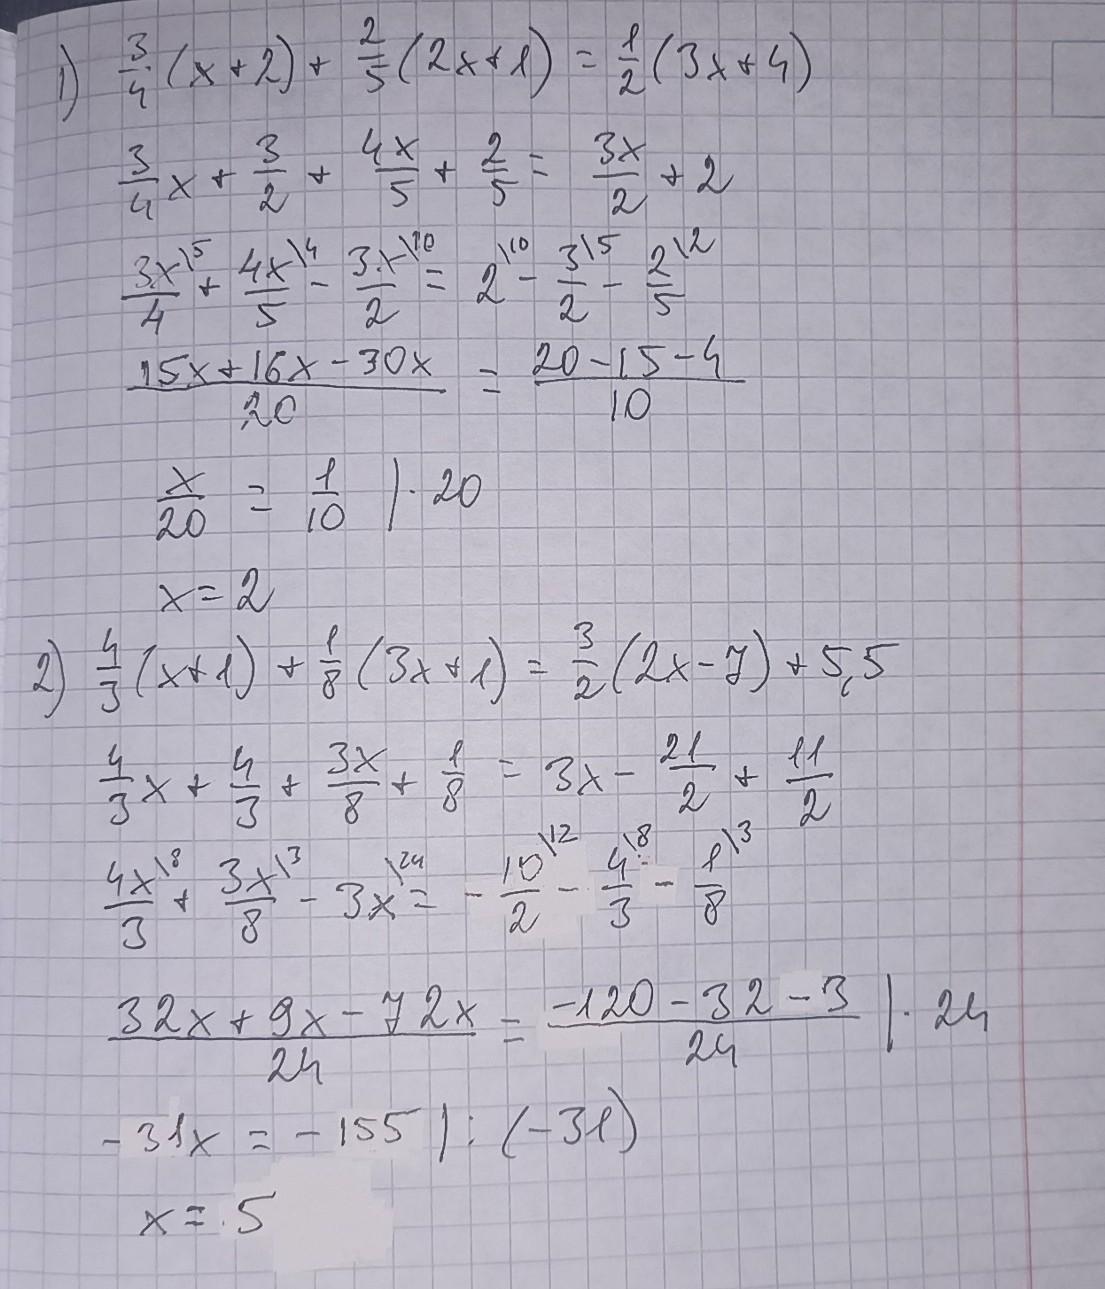 1) 3/4 (x+2) + 2/5 (2x+1) = 1/2 (3x+4)
3/4 x + 3/2 + 4x/5 + 2/5 = 3x/2 + 2
3x/4 \5 + 4x/5 \4 - 3x/2 \10 = 2 \10 - 3/2 \5 - 2/5 \2
(15x+16x-30x)/20 = (20-15-4)/10
x/20 = 1/10 | · 20
x = 2
2) 4/3 (x+1) + 1/8 (3x+1) = 3/2 (2x-7) + 5,5
4/3 x + 4/3 + 3x/8 + 1/8 = 3x - 21/2 + 11/2
4x/3 \8 + 3x/8 \3 - 3x \24 = - 10/2 \12 - 4/3 \8 - 1/8 \3
(32x+9x-72x)/24 = (-120-32-3)/24 | · 24
-31x = -155 | : (-31)
x = 5